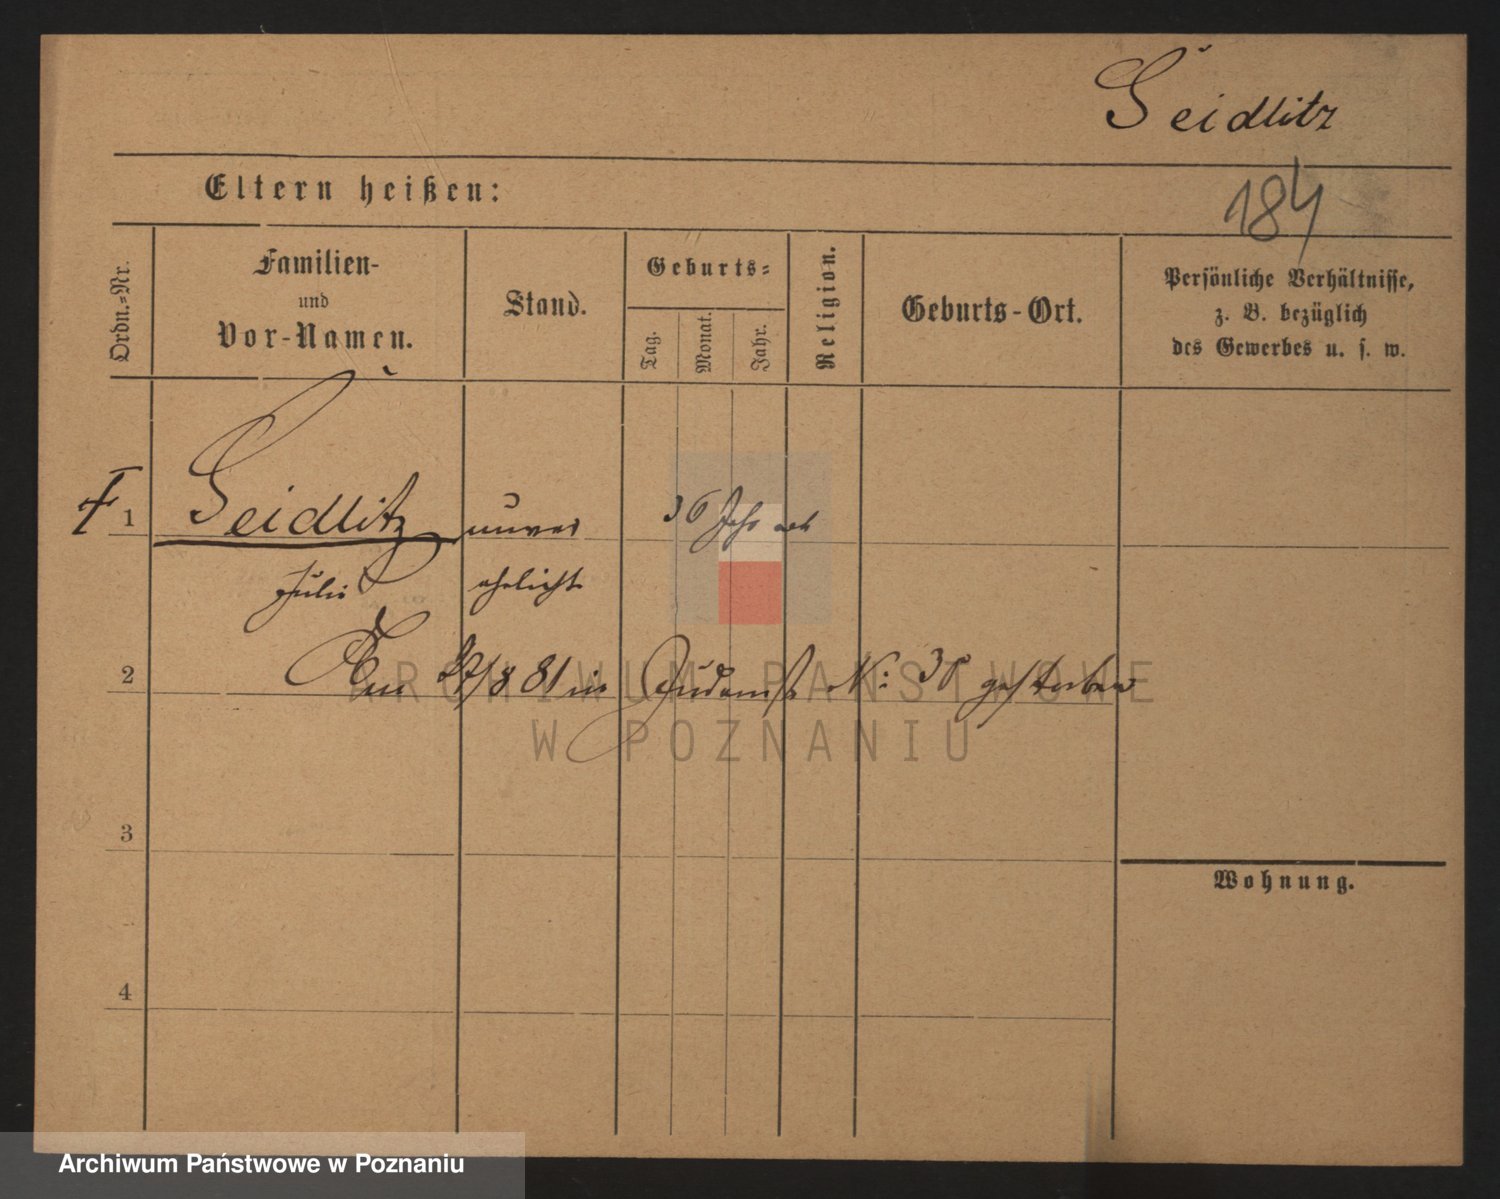 Seidlitz
Eltern heißen:
184
Ordn.-Nr.
Familien-
und
Vor-Namen.
Stand.
Geburts-
Tag.
Monat.
Jahr.
Religion.
Geburts-Ort.
Persönliche Verhältnisse,
z. B. bezüglich
des Gewerbes u. s. w.
1 Seidlitz unver 36 Jahr alt
Julie ehelicht
2 /8 81 in No: gestorben
3
Wohnung.
4
ARCHIWUM PAŃSTWOWE
W POZNANIU
Archiwum Państwowe w Poznaniu